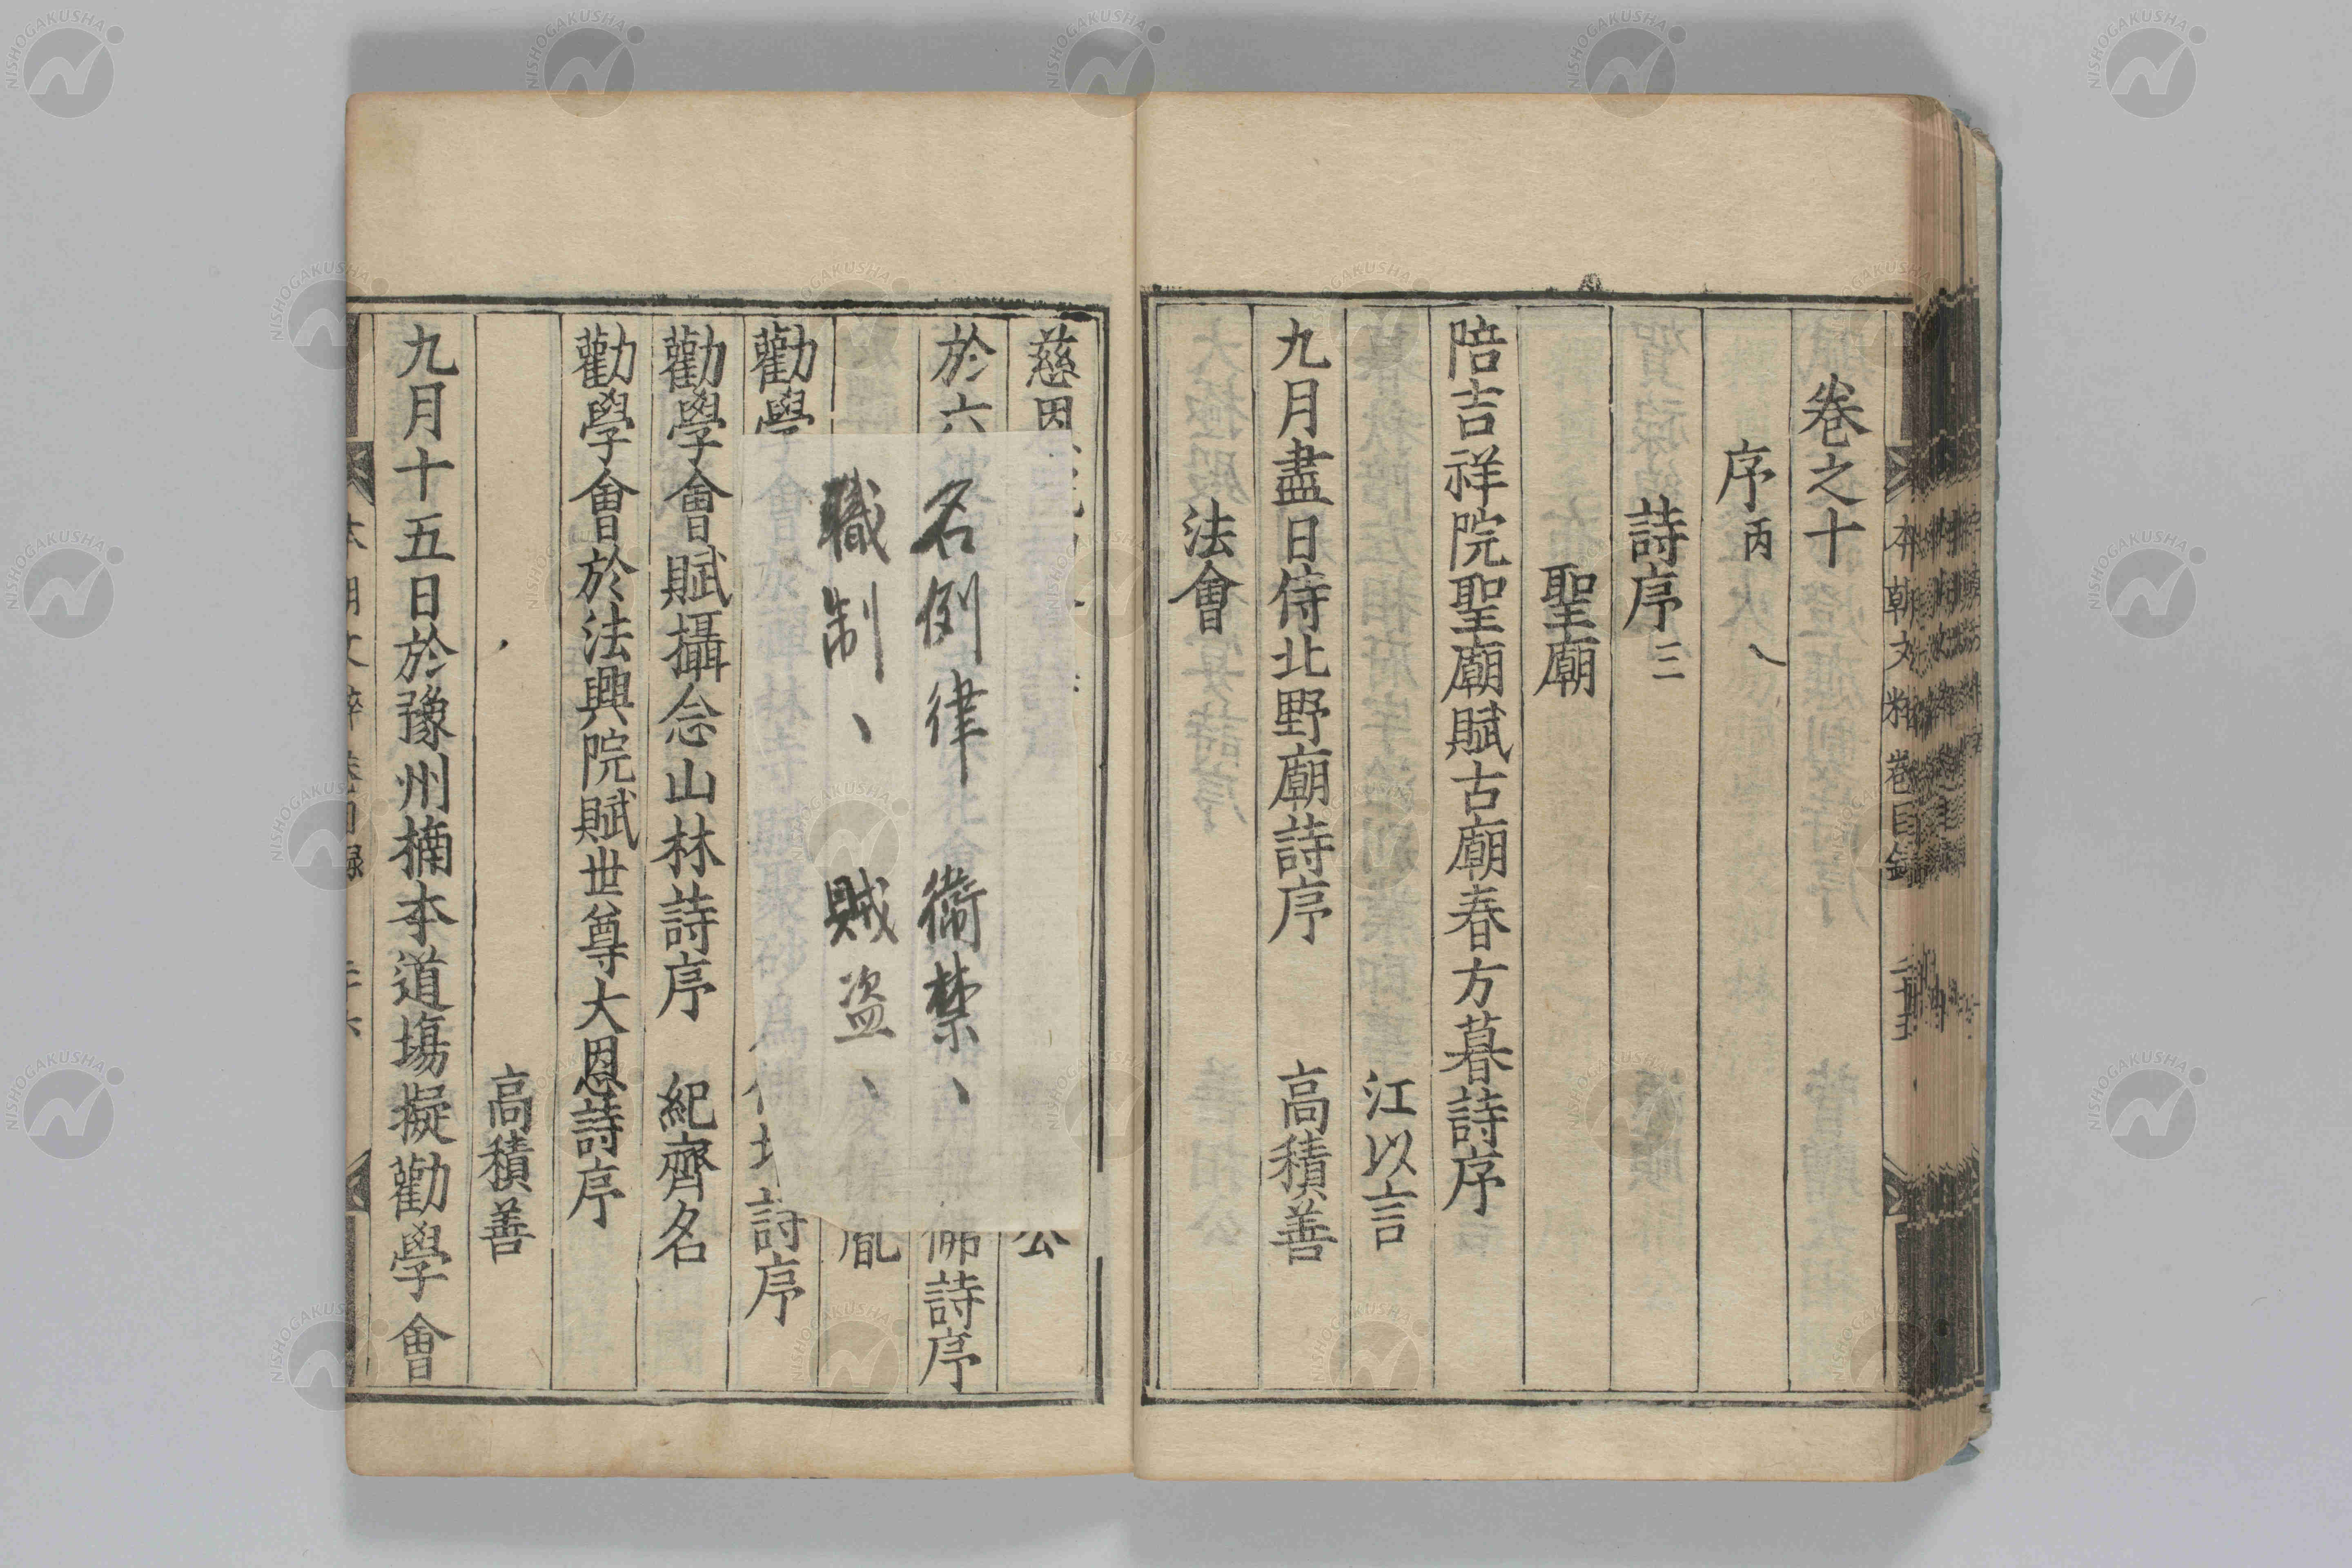 卷之十
序丙
詩序三
聖廟
陪吉祥院聖廟賦古廟春方暮詩序
江以言
九月盡日侍北野廟詩序 高積善
法會
慈恩
公
於六
佛詩序
名例律 衞禁、
職制、 賊盜、
胤
勸學會
詩序
勸學會賦攝念山林詩序 紀齊名
勸學會於法興院賦世尊大恩詩序
高積善
九月十五日於豫州楠本道塲擬勸學會
本朝文粹卷目錄
NISHOGAKUSHA